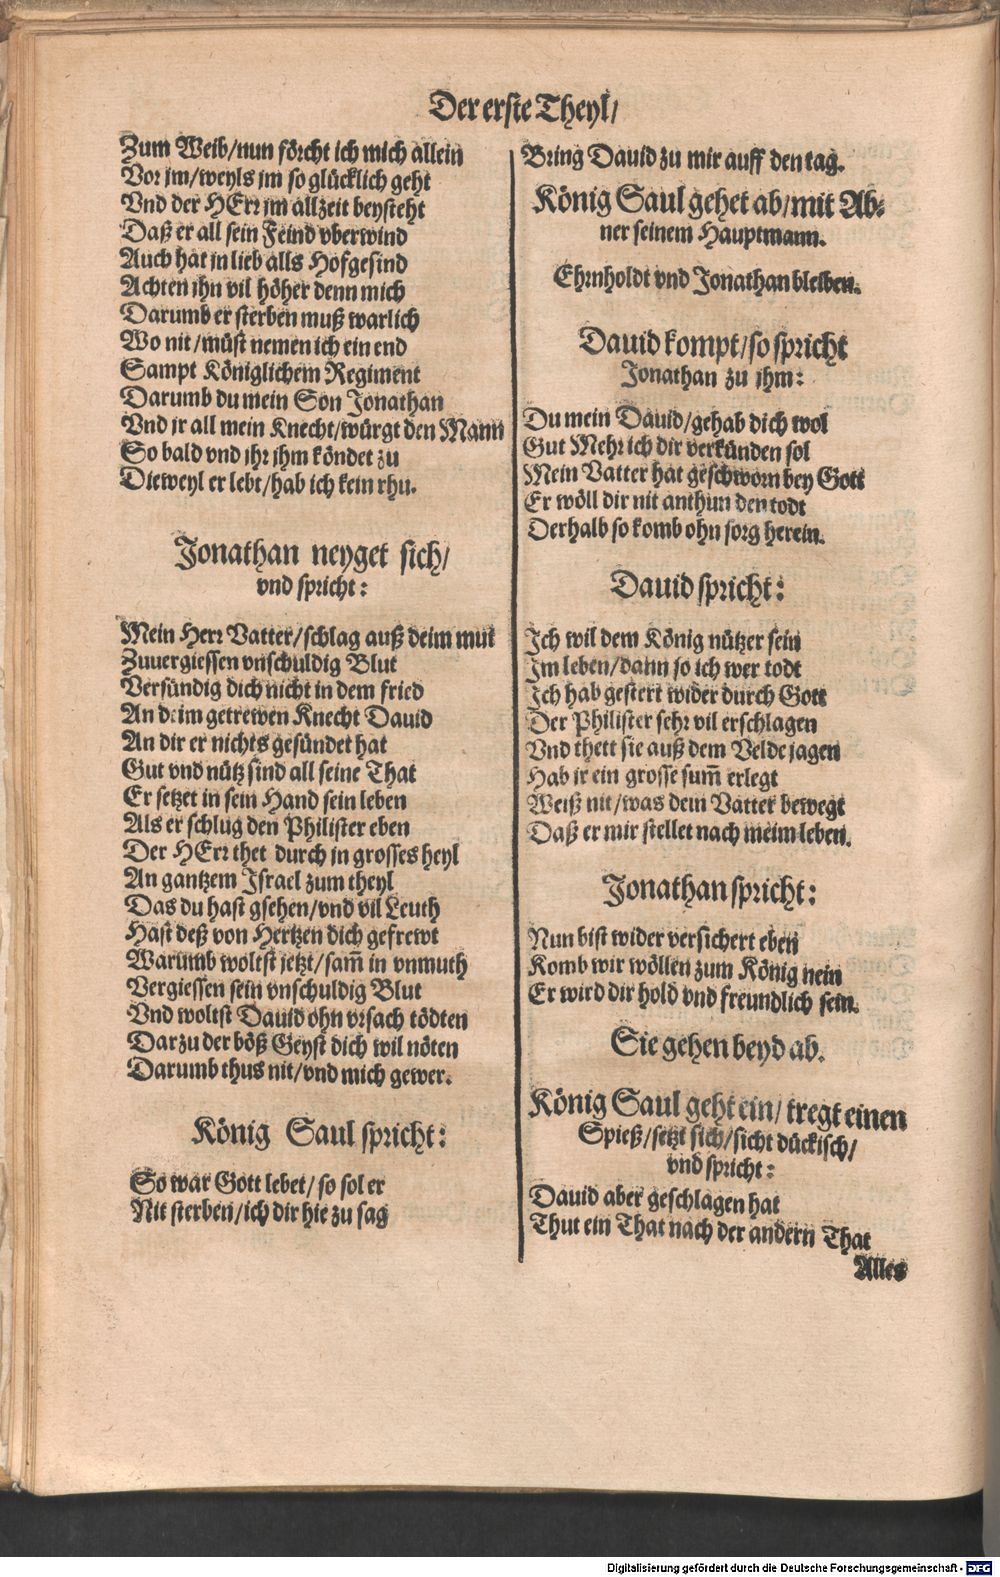 Der erste Theyl/
Zum Weib/nun förcht ich mich allein
Vor jm/weyls jm so glücklich geht
Vnd der HErr jm allzeit beysteht
Daß er all sein Feind vberwind
Auch hat jn lieb alls Hofgesind
Achten jhn vil höher denn mich
Darumb er sterben muß warlich
Wo nit/müst nemen ich ein end
Sampt Königlichem Regiment
Darumb du mein Son Jonathan
Vnd jr all mein Knecht/würgt den Mann
So bald vnd jhr jhm köndet zu
Dieweyl er lebt/hab ich kein rhu.
Jonathan neyget sich/
vnd spricht:
Mein Herr Vatter/schlag auß deim mut
Zuuergiessen vnschuldig Blut
Versündig dich nicht in dem fried
An deim getrewen Knecht Dauid
An dir er nichts gesündet hat
Gut vnd nütz sind all seine That
Er setzet in sein Hand sein leben
Als er schlug den Philister eben
Der HErr thet durch jn grosses heyl
An gantzem Israel zum theyl
Das du hast gsehen/vnd vil Leuth
Hast deß von Hertzen dich gefrewt
Warumb woltst jetzt/sam̃ in vnmuth
Vergiessen sein vnschuldig Blut
Vnd woltst Dauid ohn vrsach tödten
Darzu der böß Geyst dich wil nöten
Darumb thus nit/vnd mich gewer.
König Saul spricht:
So war Gott lebet/so sol er
Nit sterben/ich dir hie zu sag
Bring Dauid zu mir auff den tag.
König Saul gehet ab/mit Ab-
ner seinem Hauptmann.
Ehrnholdt vnd Jonathan bleiben.
Dauid kompt/so spricht
Jonathan zu jhm:
Du mein Dauid/gehab dich wol
Gut Mehr ich dir verkünden sol
Mein Vatter hat geschworn bey Gott
Er wöll dir nit anthun den todt
Derhalb so komb ohn sorg herein.
Dauid spricht:
Ich wil dem König nützer sein
Im leben/dann so ich wer todt
Ich hab gestert wider durch Gott
Der Philister sehr vil erschlagen
Vnd thett sie auß dem Velde jagen
Hab jr ein grosse sum̃ erlegt
Weiß nit/was dein Vatter bewegt
Daß er mir stellet nach meim leben.
Jonathan spricht:
Nun bist wider versichert eben
Komb wir wöllen zum König nein
Er wird dir hold vnd freundlich sein.
Sie gehen beyd ab.
König Saul geht ein/tregt einen
Spieß/setzt sich/sicht dückisch/
vnd spricht:
Dauid aber geschlagen hat
Thut ein That nach der andern That
Alles
Digitalisierung gefördert durch die Deutsche Forschungsgemeinschaft - DFG